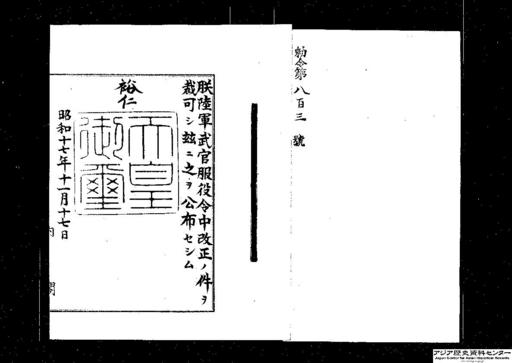 勅令第八百三號
朕陸軍武官服役令中改正ノ件ヲ
裁可シ玆ニ之ヲ公布セシム
裕仁
天皇
御璽
昭和十七年十一月十七日
内閣
アジア歴史資料センター
Japan Center for Asian Historical Records